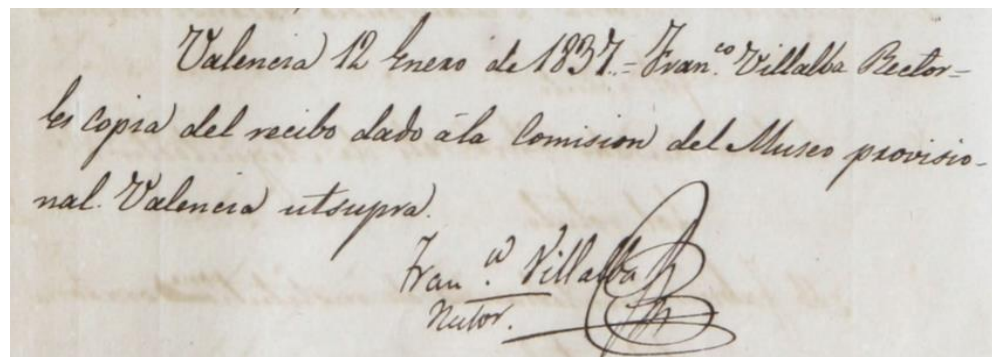 Valencia 12 Enero de 1837.= Fran.co Villalba Rector=
Es copia del recibo dado á la Comision del Museo provisio-
nal. Valencia utsupra.
Fran.co Villalba
Rector.